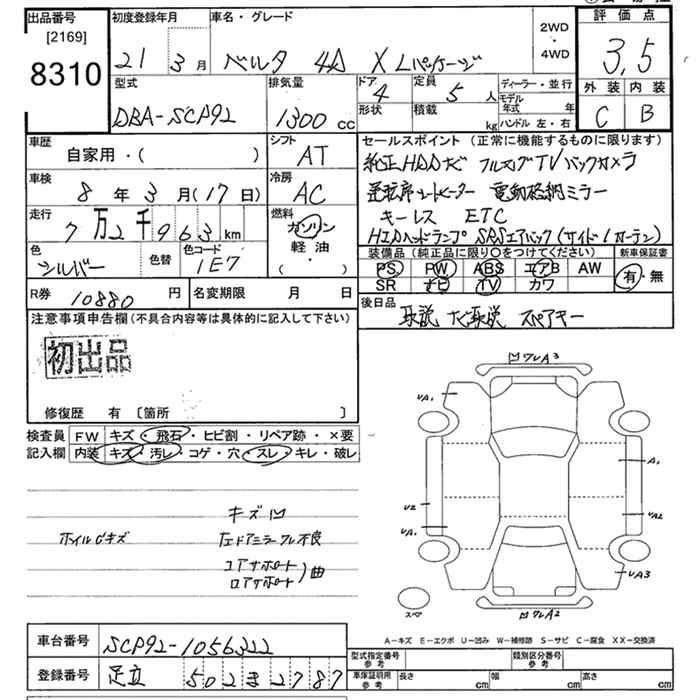 出品番号 初度登録年月 車名・グレード 2WD・4WD 評価点
[2169]
8310
21 3月 ベルタ 4A X Lパッケージ 3,5
型式 排気量 ドア 4 定員 5人 ディーラー・並行 外装 内装
DBA-SCP92 1300cc 形状 積載 kg モデル年式 年 ハンドル 左・右 C B
車歴 シフト セールスポイント(正常に機能するものに限ります)
自家用・( ) AT 純正HDDナビ フルセグTVバックカメラ
車検 冷房 運転席シートヒーター 電動格納ミラー
8年3月(17日) AC キーレス ETC
走行 燃料 HIDヘッドランプ SRSエアバック(サイド・カーテン)
7万2千963km ガソリン 軽油・( )
色 色替 色コード 装備品(純正品に限り○をつけてください) 新車保証書
シルバー 1E7 PS PW ABS エアB AW 有・無
SR ナビ TV カワ
R券 10880円 名変期限 月 日 後日品
取説 ナビ取説 スペアキー
注意事項申告欄(不具合内容等は具体的に記入して下さい)
初出品
修復歴 有 〔箇所 〕
検査員記入欄 FW キズ・飛石・ヒビ割・リペア跡・×要
内装 キズ・汚レ・コゲ・穴・スレ・キレ・破レ
キズ凹
ホイルCキズ 左ドアミラーワレ不良
コアサポート
ロアサポート 曲
凹ワレA3
UA1
A1
U2
UA1
UA2
UA3
凹ワレA2
スペア
A-キズ E-エクボ U-凹み W-補修跡 S-サビ C-腐食 XX-交換済
車台番号 SCP92-1056322
型式指定番号 参考 類別区分番号 参考
登録番号 足立 502 ま 2787
車庫証明用 参考 長さ cm 幅 cm 高さ cm